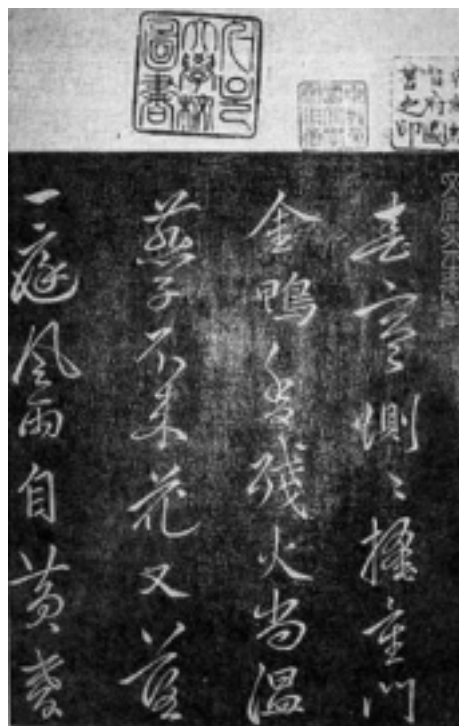 圖書
春寒惻〻掩重門
金鴨香殘火尚温
燕子不来花又落
一庭風雨自黄昏